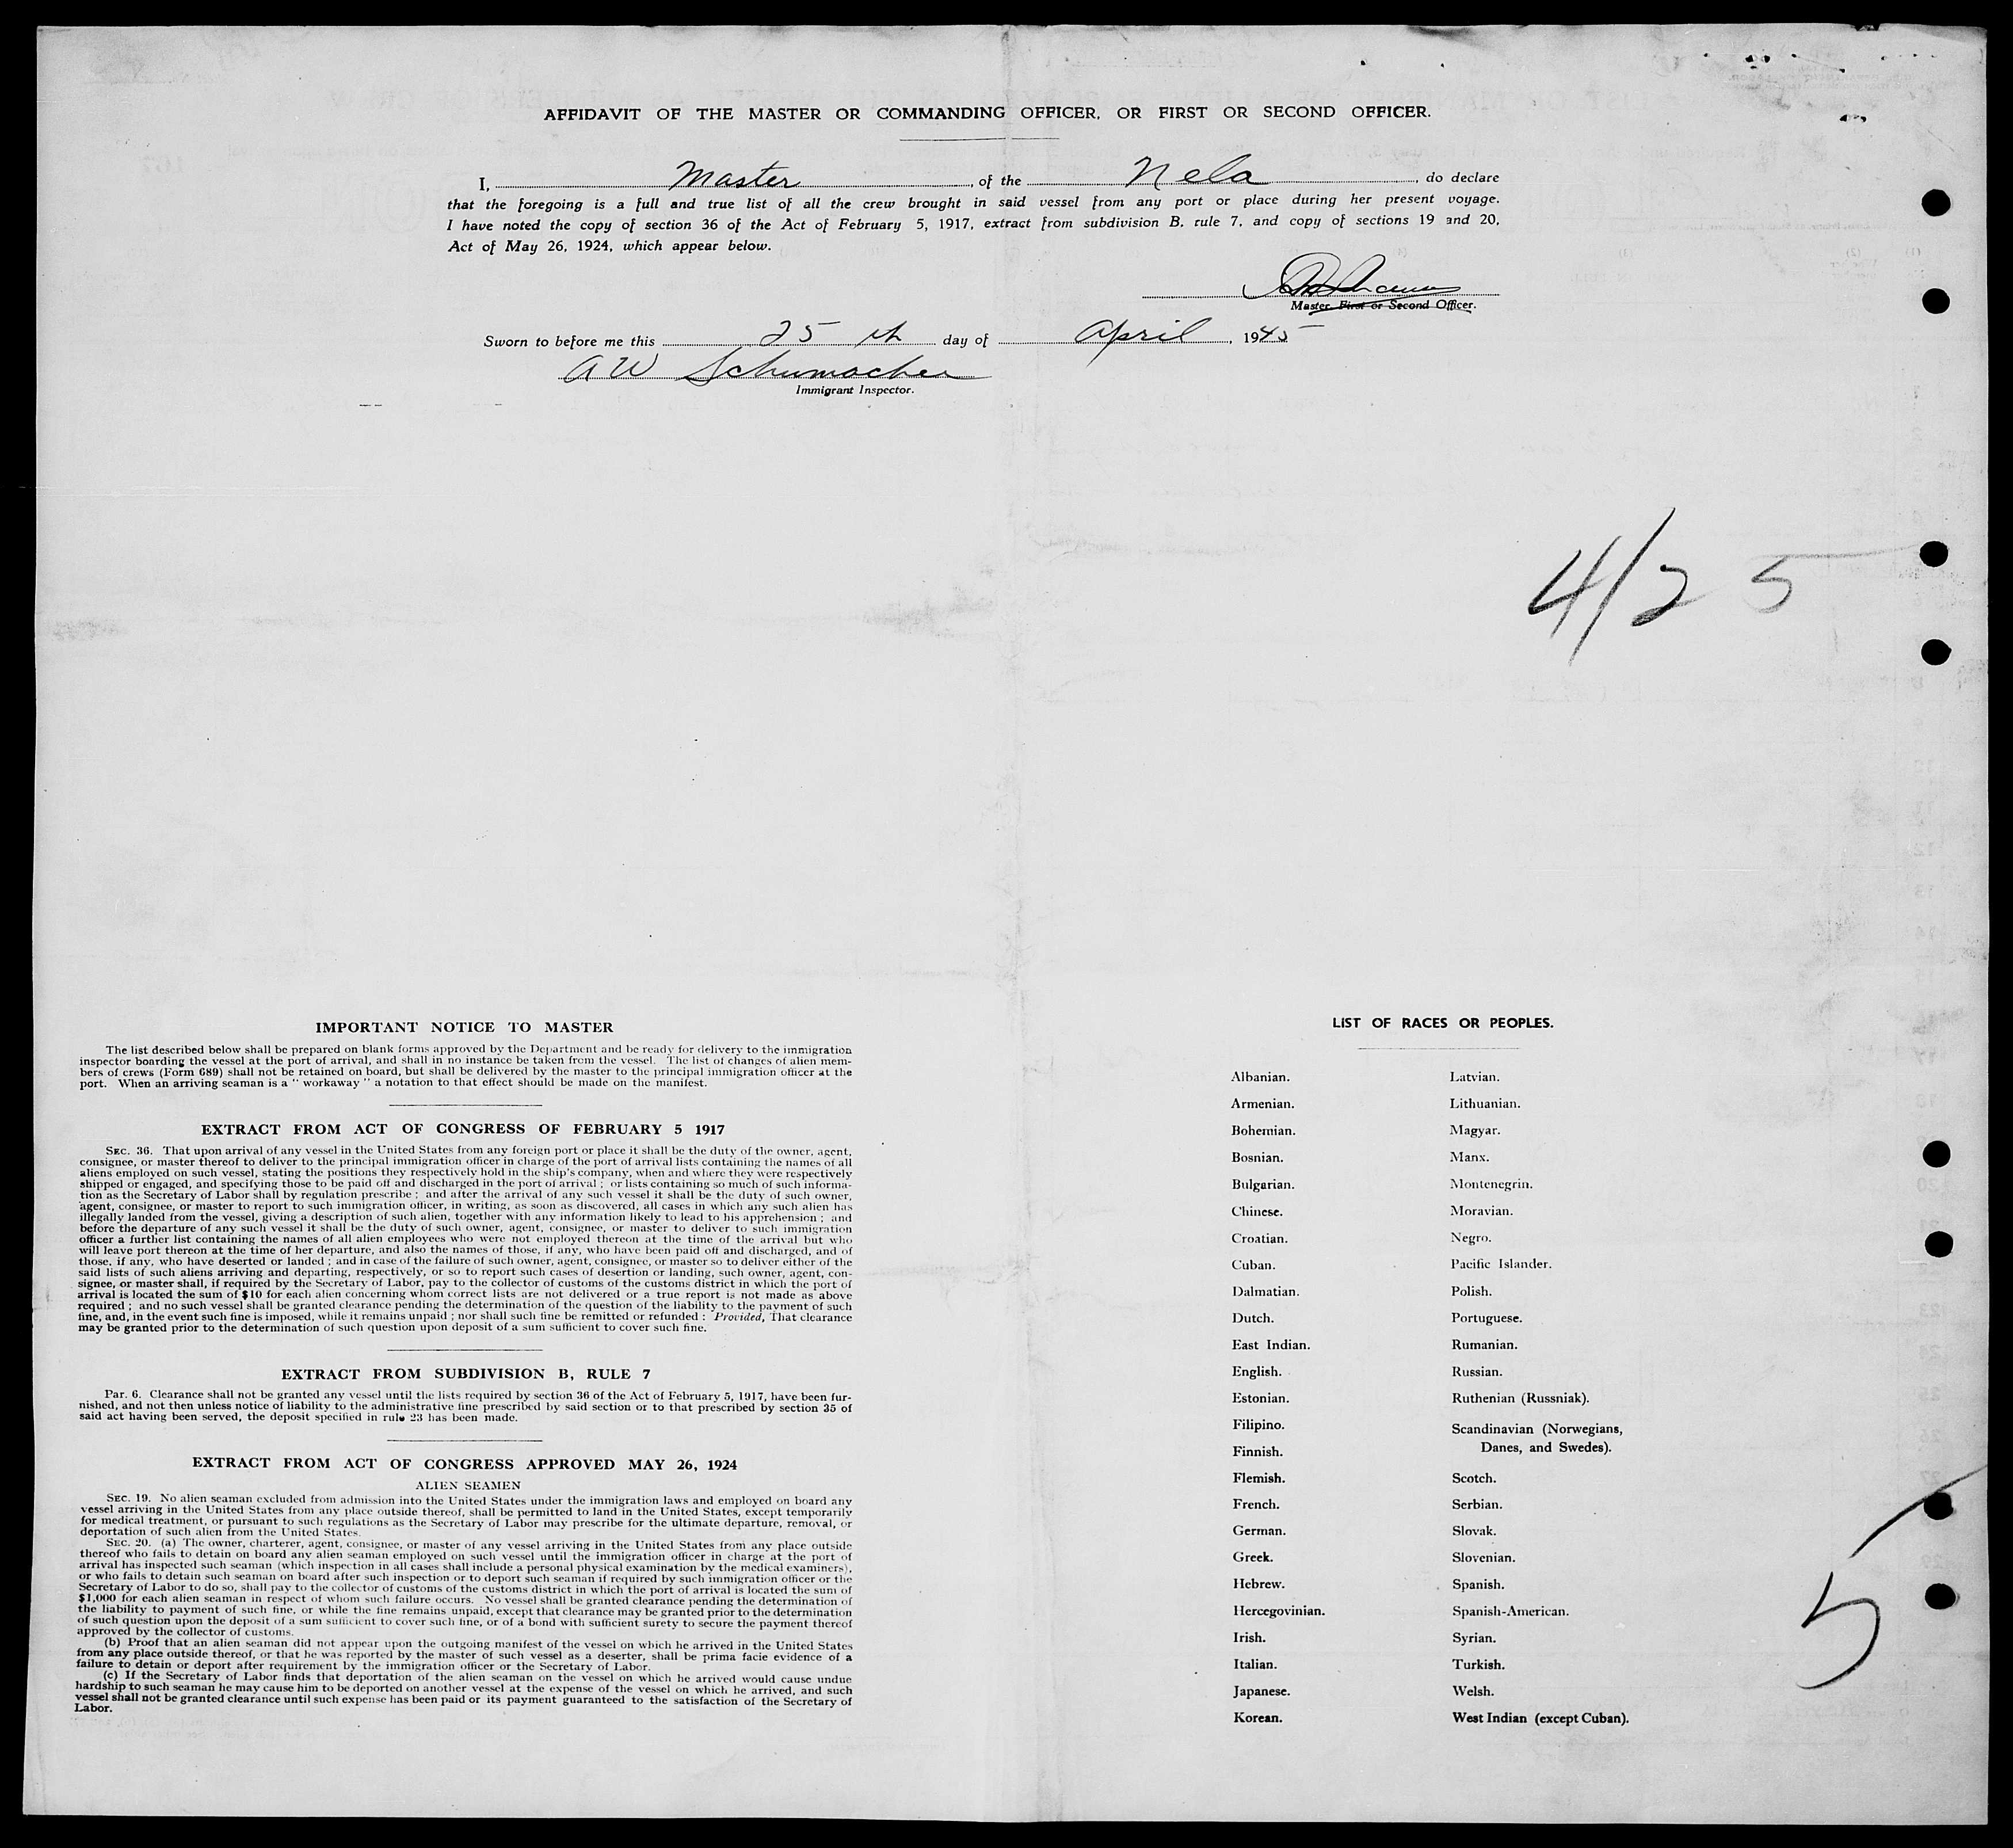 AFFIDAVIT OF THE MASTER OR COMMANDING OFFICER, OR FIRST OR SECOND OFFICER.
I, Master, of the Nela, do declare
that the foregoing is a full and true list of all the crew brought in said vessel from any port or place during her present voyage.
I have noted the copy of section 36 of the Act of February 5, 1917, extract from subdivision B, rule 7, and copy of sections 19 and 20,
Act of May 26, 1924, which appear below.
Master First or Second Officer.
Sworn to before me this 25 th day of April, 1945
A W Schumacher
Immigrant Inspector.
4/25
IMPORTANT NOTICE TO MASTER
The list described below shall be prepared on blank forms approved by the Department and be ready for delivery to the immigration
inspector boarding the vessel at the port of arrival, and shall in no instance be taken from the vessel. The list of changes of alien mem-
bers of crews (Form 689) shall not be retained on board, but shall be delivered by the master to the principal immigration officer at the
port. When an arriving seaman is a " workaway " a notation to that effect should be made on the manifest.
EXTRACT FROM ACT OF CONGRESS OF FEBRUARY 5 1917
SEC. 36. That upon arrival of any vessel in the United States from any foreign port or place it shall be the duty of the owner, agent,
consignee, or master thereof to deliver to the principal immigration officer in charge of the port of arrival lists containing the names of all
aliens employed on such vessel, stating the positions they respectively hold in the ship's company, when and where they were respectively
shipped or engaged, and specifying those to be paid off and discharged in the port of arrival ; or lists containing so much of such informa-
tion as the Secretary of Labor shall by regulation prescribe ; and after the arrival of any such vessel it shall be the duty of such owner,
agent, consignee, or master to report to such immigration officer, in writing, as soon as discovered, all cases in which any such alien has
illegally landed from the vessel, giving a description of such alien, together with any information likely to lead to his apprehension ; and
before the departure of any such vessel it shall be the duty of such owner, agent, consignee, or master to deliver to such immigration
officer a further list containing the names of all alien employees who were not employed thereon at the time of the arrival but who
will leave port thereon at the time of her departure, and also the names of those, if any, who have been paid off and discharged, and of
those, if any, who have deserted or landed ; and in case of the failure of such owner, agent, consignee, or master so to deliver either of the
said lists of such aliens arriving and departing, respectively, or so to report such cases of desertion or landing, such owner, agent, con-
signee, or master shall, if required by the Secretary of Labor, pay to the collector of customs of the customs district in which the port of
arrival is located the sum of $10 for each alien concerning whom correct lists are not delivered or a true report is not made as above
required ; and no such vessel shall be granted clearance pending the determination of the question of the liability to the payment of such
fine, and, in the event such fine is imposed, while it remains unpaid ; nor shall such fine be remitted or refunded : Provided, That clearance
may be granted prior to the determination of such question upon deposit of a sum sufficient to cover such fine.
EXTRACT FROM SUBDIVISION B, RULE 7
Par. 6. Clearance shall not be granted any vessel until the lists required by section 36 of the Act of February 5, 1917, have been fur-
nished, and not then unless notice of liability to the administrative fine prescribed by said section or to that prescribed by section 35 of
said act having been served, the deposit specified in rule 23 has been made.
EXTRACT FROM ACT OF CONGRESS APPROVED MAY 26, 1924
ALIEN SEAMEN
SEC. 19. No alien seaman excluded from admission into the United States under the immigration laws and employed on board any
vessel arriving in the United States from any place outside thereof, shall be permitted to land in the United States, except temporarily
for medical treatment, or pursuant to such regulations as the Secretary of Labor may prescribe for the ultimate departure, removal, or
deportation of such alien from the United States.
SEC. 20. (a) The owner, charterer, agent, consignee, or master of any vessel arriving in the United States from any place outside
thereof who fails to detain on board any alien seaman employed on such vessel until the immigration officer in charge at the port of
arrival has inspected such seaman (which inspection in all cases shall include a personal physical examination by the medical examiners),
or who fails to detain such seaman on board after such inspection or to deport such seaman if required by such immigration officer or the
Secretary of Labor to do so, shall pay to the collector of customs of the customs district in which the port of arrival is located the sum of
$1,000 for each alien seaman in respect of whom such failure occurs. No vessel shall be granted clearance pending the determination of
the liability to payment of such fine, or while the fine remains unpaid, except that clearance may be granted prior to the determination
of such question upon the deposit of a sum sufficient to cover such fine, or of a bond with sufficient surety to secure the payment thereof
approved by the collector of customs.
(b) Proof that an alien seaman did not appear upon the outgoing manifest of the vessel on which he arrived in the United States
from any place outside thereof, or that he was reported by the master of such vessel as a deserter, shall be prima facie evidence of a
failure to detain or deport after requirement by the immigration officer or the Secretary of Labor.
(c) If the Secretary of Labor finds that deportation of the alien seaman on the vessel on which he arrived would cause undue
hardship to such seaman he may cause him to be deported on another vessel at the expense of the vessel on which he arrived, and such
vessel shall not be granted clearance until such expense has been paid or its payment guaranteed to the satisfaction of the Secretary of
Labor.
LIST OF RACES OR PEOPLES.
Albanian.
Armenian.
Bohemian.
Bosnian.
Bulgarian.
Chinese.
Croatian.
Cuban.
Dalmatian.
Dutch.
East Indian.
English.
Estonian.
Filipino.
Finnish.
Flemish.
French.
German.
Greek.
Hebrew.
Hercegovinian.
Irish.
Italian.
Japanese.
Korean.
Latvian.
Lithuanian.
Magyar.
Manx.
Montenegrin.
Moravian.
Negro.
Pacific Islander.
Polish.
Portuguese.
Rumanian.
Russian.
Ruthenian (Russniak).
Scandinavian (Norwegians,
Danes, and Swedes).
Scotch.
Serbian.
Slovak.
Slovenian.
Spanish.
Spanish-American.
Syrian.
Turkish.
Welsh.
West Indian (except Cuban).
5